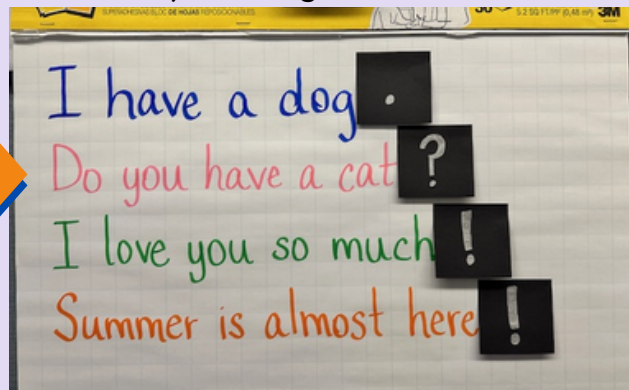 SUPERADHESIVAS BLOC DE HOJAS REPOSICIONABLES
30
5.2 SQ FT/PI² (0,48 m²) 3M
I have a dog.
Do you have a cat?
I love you so much!
Summer is almost here!